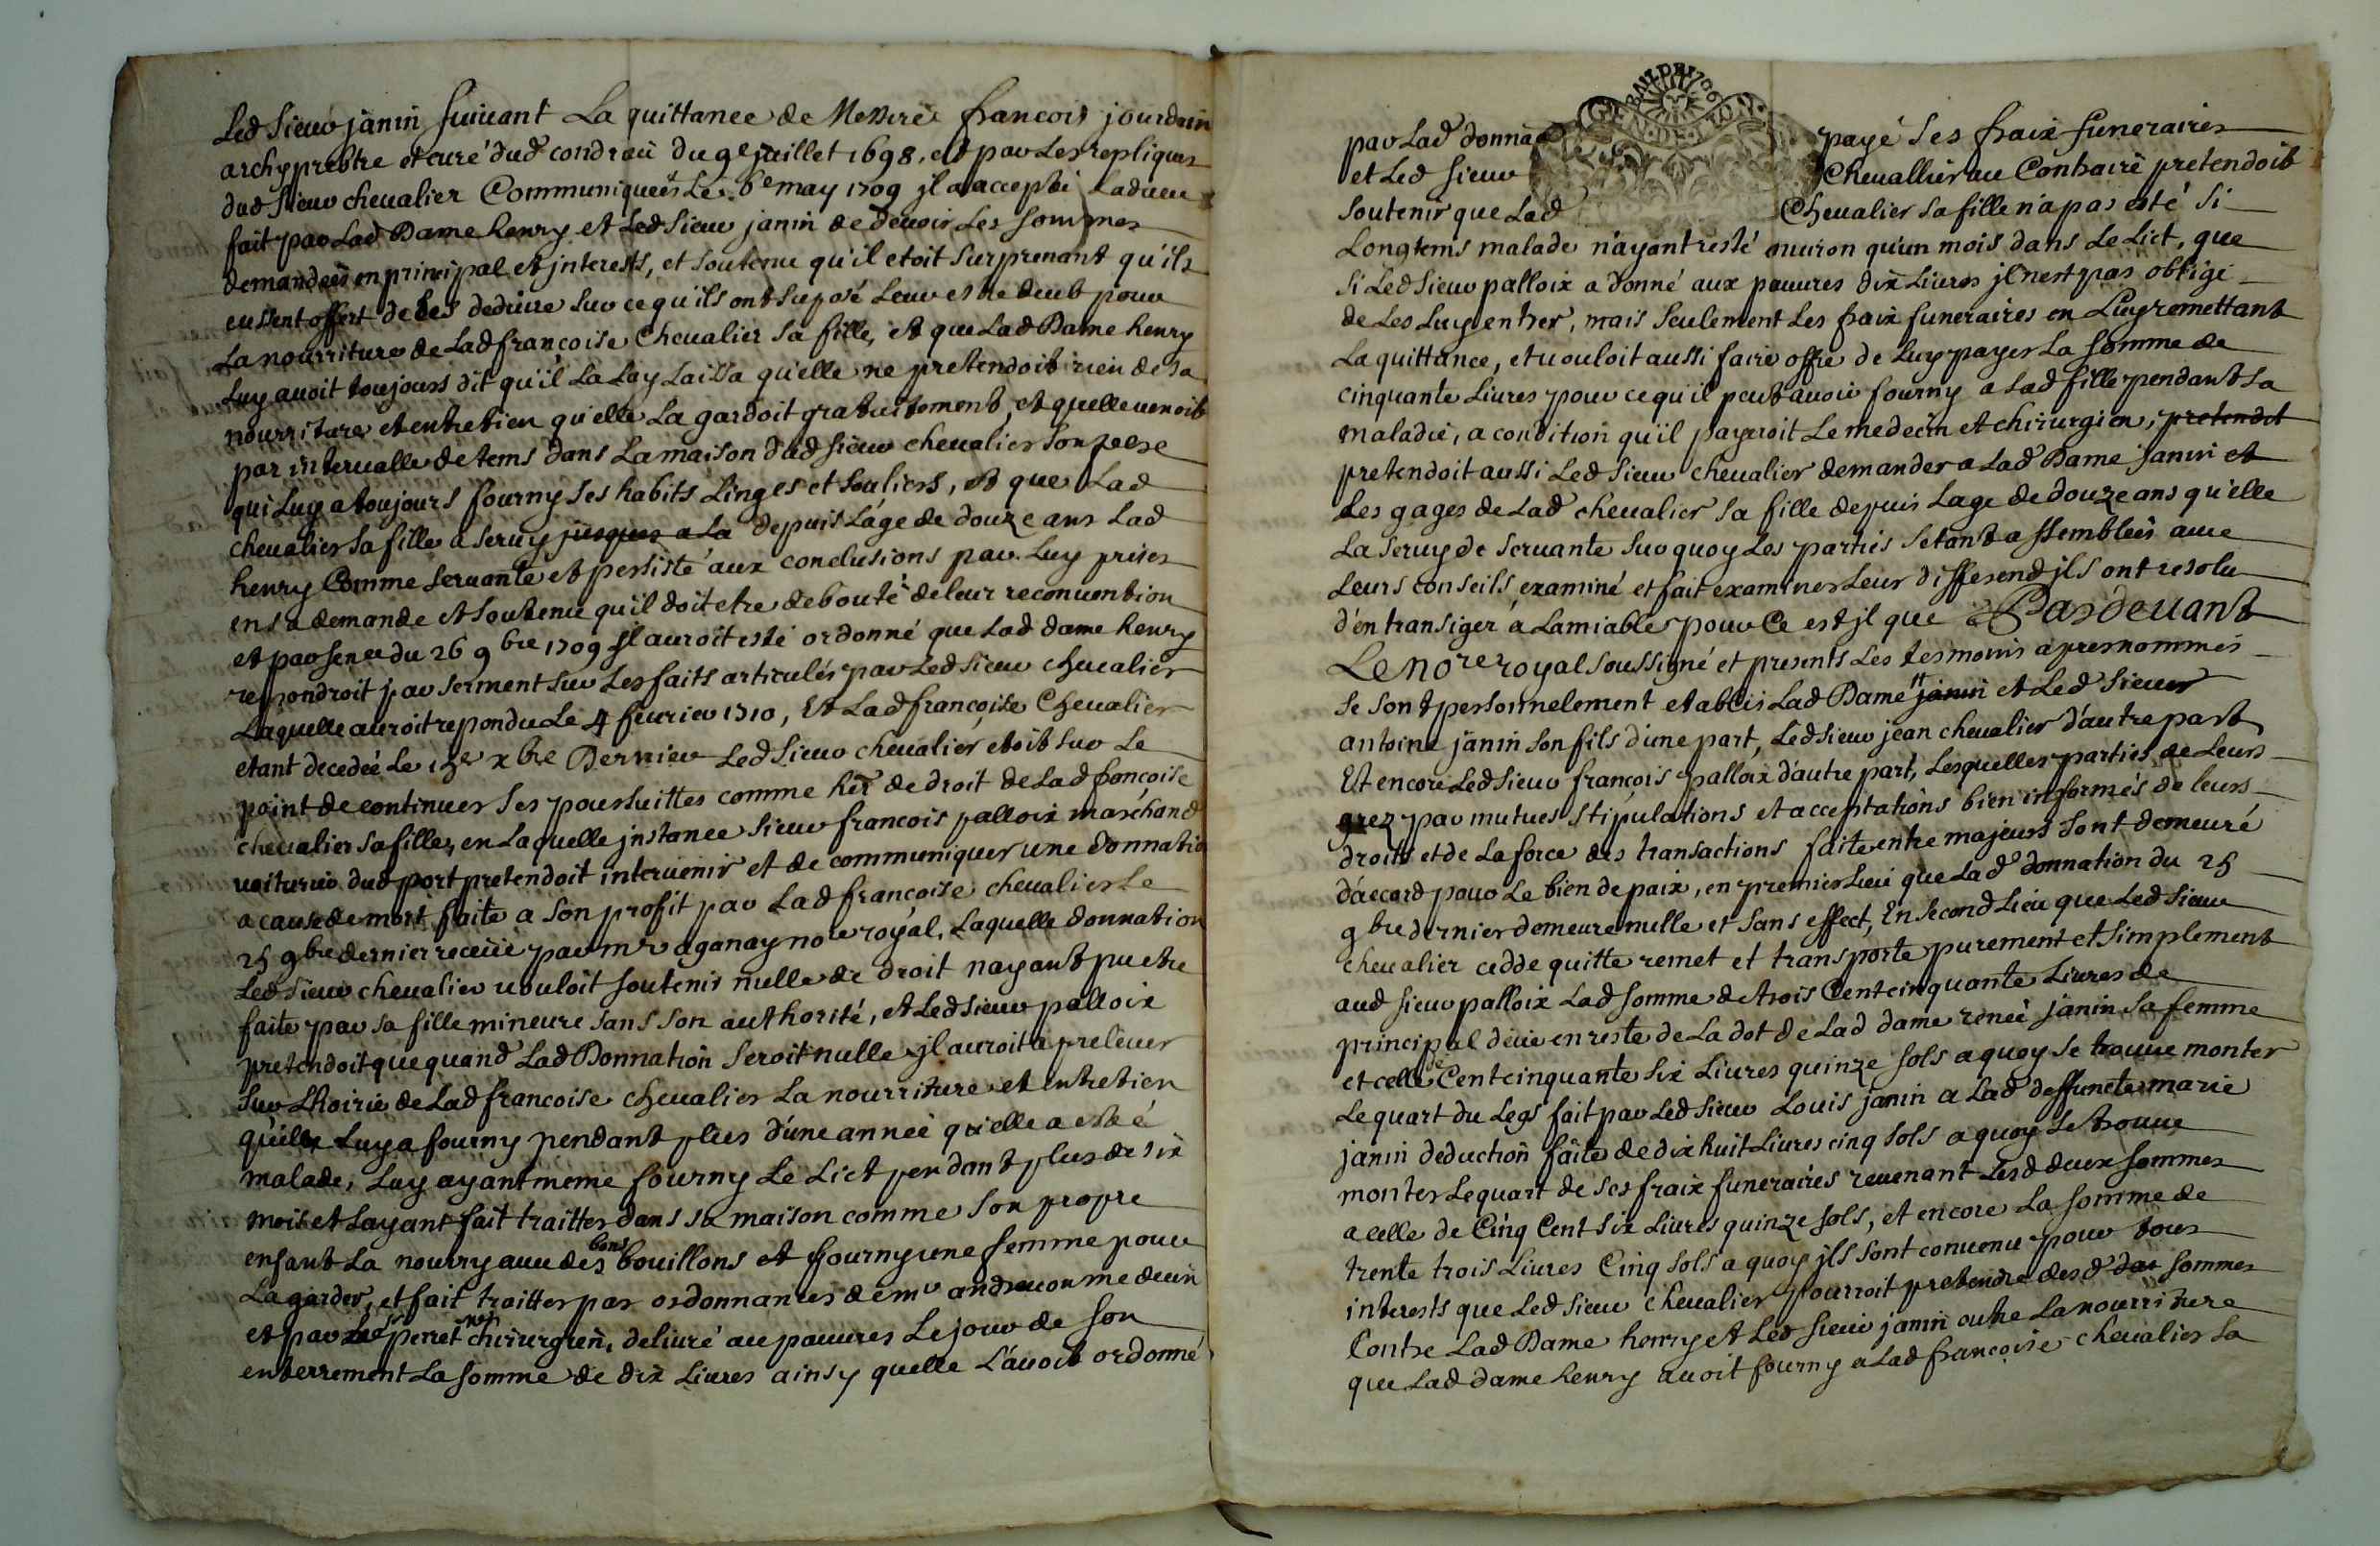 Led Sieur janin suivant La quittance de Messire francois jourdain
archyprebtre et curé dud condrieu du 9e juillet 1698, et par Les repliques
dud Sieur chevalier Communiqueés Le 6e may 1709 jl a accepté Ladveu
fait par Lad Dame henry et Led Sieur janin de devoir Les sommes
demandeés en principal et jnterests, et soutenu qu'il etoit Surprenant qu'ils
eussent offert de Les deduire sur ce qu'ils ont suposé Leur estre deub pour
La nourriture de Lad francoise Chevalier sa fille, et que Lad Dame henry
Luy avoit toujours dit qu'il La Luy Laissa qu'elle ne pretendoit rien de sa
nourriture et entretien qu'elle La gardoit gratuitement, et quelle venoit
par intervalle de tems dans La maison dud sieur chevalier son pere
qui Luy a toujours fourny ses habits Linges et souliers, et que Lad
chevalier sa fille a servy jusques a La depuis L'age de douze ans Lad
henry Comme servante et persisté aux conclusions par Luy prises
en sa demande et soutenu qu'il doit etre debouté de leur reconvention
et par senee du 26 9bre 1709 jl auroit esté ordonné que Lad dame henry
repondroit par serment sur Les faits articulés par Led sieur chevalier
Laquelle auroit repondu Le 4 fevrier 1710, Et Lad françoise Chevalier
etant decedeé Le xbre Dernier Led Sieur chevalier etoit sur Le
point de continuer ses poursuittes comme her de droit de Lad francoise
chevalier sa fille, en Laquelle jnstance Sieur francois palloix marchand
voiturier dud port pretendoit intervenir et de communiquer une donnatio
a cause de mort faite a son profit par Lad françoise chevalier Le
25 9bre dernier receüe par mr aganay nore royal, Laquelle donnation
Led Sieur chevalier vouloit soutenir nulle de droit nayant pu etre
faite par sa fille mineure sans son authorité, et Led sieur palloix
pretendoit que quand Lad Donnation seroit nulle jl auroit a prelever
sur Lhoirie de Lad francoise chevalier La nourriture et entretien
qu'il Luy a fourny pendant plus d'une anneé qu'elle a esté
malade, Luy ayant meme fourny Le Lict pendant plus de six
mois et Layant fait traitter dans sa maison comme son propre
enfant La nourry avec des bons bouillons et fourny une femme pour
La garder, et fait traitter par ordonnances de mr medecin
et par perret chirurgien, delivré au pauvres Le jour de son
enterrement La somme de dix Livres ainsy quelle L'avoit ordonné
par Lad donna payé ses fraix funeraires
et Led sieur Chevallier au Contraire pretendoit
soutenir que Lad Chevalier sa fille n'a pas esté si
Longtems malade n'ayant resté environ qu'un mois dans Le Lict, que
si Led Sieur palloix a donné aux pauvres dix Livres jl nest pas obligé
de Les Luy entrer, mais seulement Les fraix funeraires en Luy remettant
La quittance, et vouloit aussi faire offre de Luy payer La somme de
cinquante Livres pour ce qu'il peut avoir fourny a Lad fille pendant sa
maladie, a condition qu'il payeroit Le medecin et chirurgien, pretendoit
pretendoit aussi Led Sieur chevalier demander a Lad Dame janin et
Les gages de Lad chevalier sa fille depuis Lage de douze ans qu'elle
La servy de servante sur quoy Les parties setant assembleés avec
Leurs conseils, examiné et fait examiner Leur differend jls ont resolu
d'en transiger a Lamiable, pour Ce est jl que Pardevant
Le nore royal soussigné et presents Les tesmoins apres nommes
se sont personnelement etablis Lad Dame janin et Led Sieur
antoine janin son fils d'une part, Led sieur jean chevalier d'autre part
Et encore Led Sieur françois palloix d'autre part, Lesquelles parties de Leurs
grez par mutues stipulations et acceptations bien informés de leurs
droits et de La force des transactions faite entre majeurs sont demeuré
d'accord pour Le bien de paix, en premier Lieu que Lad donnation du 25
9bre dernier demeure nulle et sans effect, En second Lieu que Led Sieur
chevalier cedde quitte remet et transporte purement et simplement
aud sieur palloix Lad somme de trois Cent cinquante Livres de
principal deüe en reste de La dot de Lad dame reneé janin sa femme
et celle de Cent cinquante six Livres quinze sols a quoy se trouve monter
Le quart du Legs fait par Led Sieur Louis janin a Lad deffuncte marie
janin deduction faite de dix huit Livres cinq sols a quoy se trouve
monter Le quart de ses fraix funeraires revenant Lesd deux sommes
a celle de Cinq Cent six Livres quinze sols, et encore La somme de
trente trois Livres Cinq sols a quoy jls sont convenu pour tous
interests que Led Sieur chevalier pourroit pretendre desd sommes
Contre Lad Dame henry et Led Sieur janin outre La nourriture
que Lad dame henry avoit fourny a Lad francoise chevalier sa